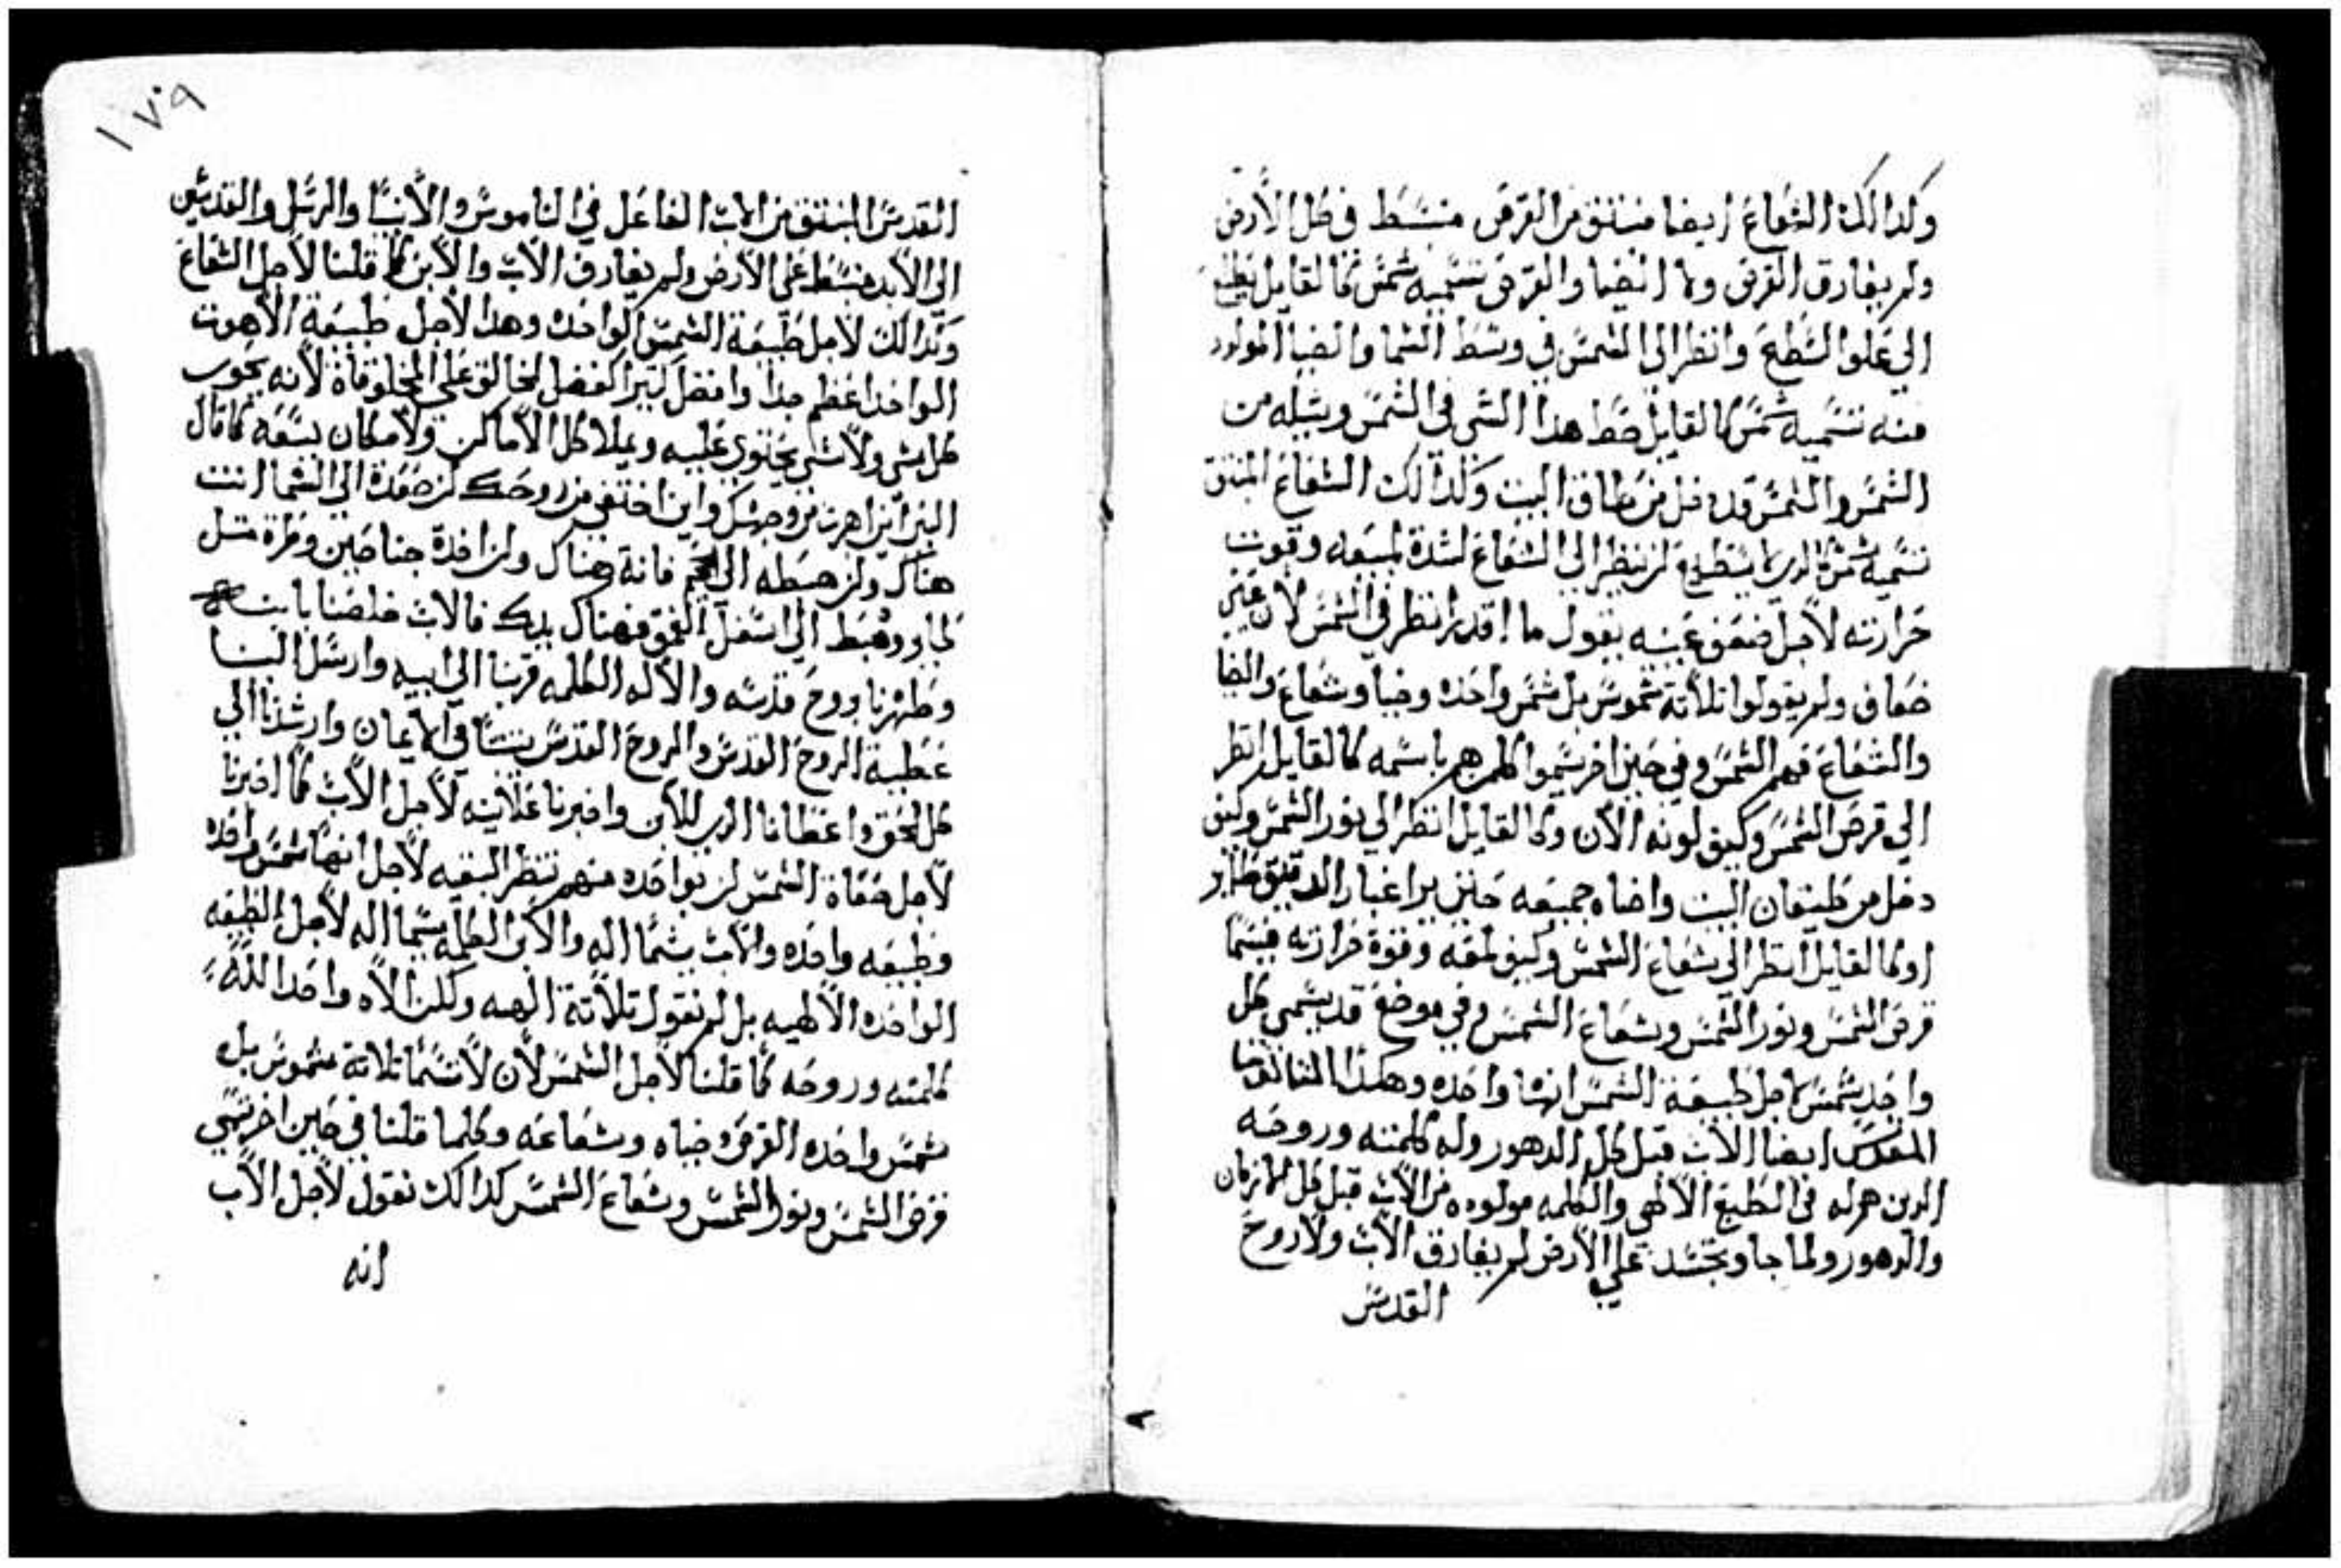 وكدالك الشعاع ايضا منبتق من القرص منبسط في كل الأرض
ولم يفارق القرص ولا الضيا والقرص تسميه شمس كالقايل تطلع
الي علو السطح وانظر الي الشمس في وسط السما والضيا المولود
منه تسميه شمس كالقايل حط هدا الشي في الشمس وشيله من
الشمس والشمس قد دخل من طاق البيت وكدالك الشعاع المنبتق
تسميه شمس كالدي لا يستطيع ان ينظر الي الشعاع لشدة لميعه وقوت
حرارته لأجل ضعف عينه يقول ما اقدر انظر في الشمس لأن عيني
ضعاف ولم يقولوا تلاتة شموس بل شمس واحده وضيا وشعاع والضيا
والشعاع فهم الشمس وفي حين اخر يسموا كلمن هم باسمه كالقايل انظر
الي قرص الشمس وكيف لونه الأن وكالقايل انظر الي نور الشمس وكيف
دخل من طيقان البيت واضاه جميعه حتي يرا غبار الدقيق طاير
اوكالقايل انظر الي شعاع الشمس وكيف لمعه وقوة حرارته فيسما
قرص الشمس ونور الشمس وشعاع الشمس وفي موضع قد يسمي كل
واحد شمس لاجل طبيعة الشمس انها واحده وهكدا التالوت
المقدس ايضا الأب قبل كل الدهور وله كلمته وروحه
الدين هم له في الطبع الألهي والكلمه مولوده من الأب قبل كل الازمان
والدهور ولما جا وتجسد علي الأرض لم يفارق الأب ولا روح
القدس
١٧٩
القدس المنبتق من الاب الفاعل في الناموس والأنبيا والرسل والقديسين
الي الأبد منبسط علي الأرض ولم يفارق الأب والأبن كما قلنا لأجل الشعاع
وكدالك لأجل طبيعة الشمس الواحده وهدا لأجل طبيعة الاهوت
الواحد اعظم جدا وافضل كتيرا كفضل الخالق علي المخلوقاة لأنه يحوي
كل شي ولا شي يحتوي عليه ويملا كل الأماكن ولا مكان يسعه كما قال
النبي اين اهرب من وجهك واين اختفي من روحك ان صعدة الي السما انت
هناك وان هبطه الي الجحيم فانة هناك وان اخدة جناحين وطرة متل
وهبط الي اسفل العمق فهناك يدك فالاب خلصنا بابنه
وطهرنا بروح قدسه والأله الكلمه قربنا الي ابيه وارسل الينا
عطية الروح القدس والروح القدس يتبتنا في الأيمان وارشدنا الي
كل الحق واعطانا الدي للأبن واخبرنا علانيه لأجل الأب كما اخبرنا
لأجل صفاة الشمس ان بواحده منهم تنظر البقيه لأجل انها شمس واحده
وطبيعه واحده والأب يسما اله والأبن الكلمه يسما اله لأجل الطبيعه
الواحده الألهيه بل لم نقول تلاتة الهه ولكن الأه واحد الله
كلمته وروحه كما قلنا لأجل الشمس لأن لا تسما تلاتة شموس بل
شمس واحده القرص وضياه وشعاعه وكلما قلنا في حين اخر نسمي
قرص الشمس ونور الشمس وشعاع الشمس كدالك نقول لأجل الأب
انه